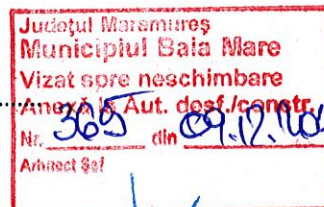 Județul Maramureș
Municipiul Baia Mare
Vizat spre neschimbare
Anexă la Aut. desf./constr.
Nr. 365 din 09.12.
Arhitect Șef